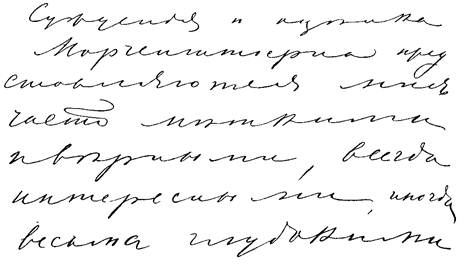 Суждения и оценка
Моргенштерна пред
ставляются мне
часто меткими
и верными, всегда
интересными, иногда
весьма глубокими